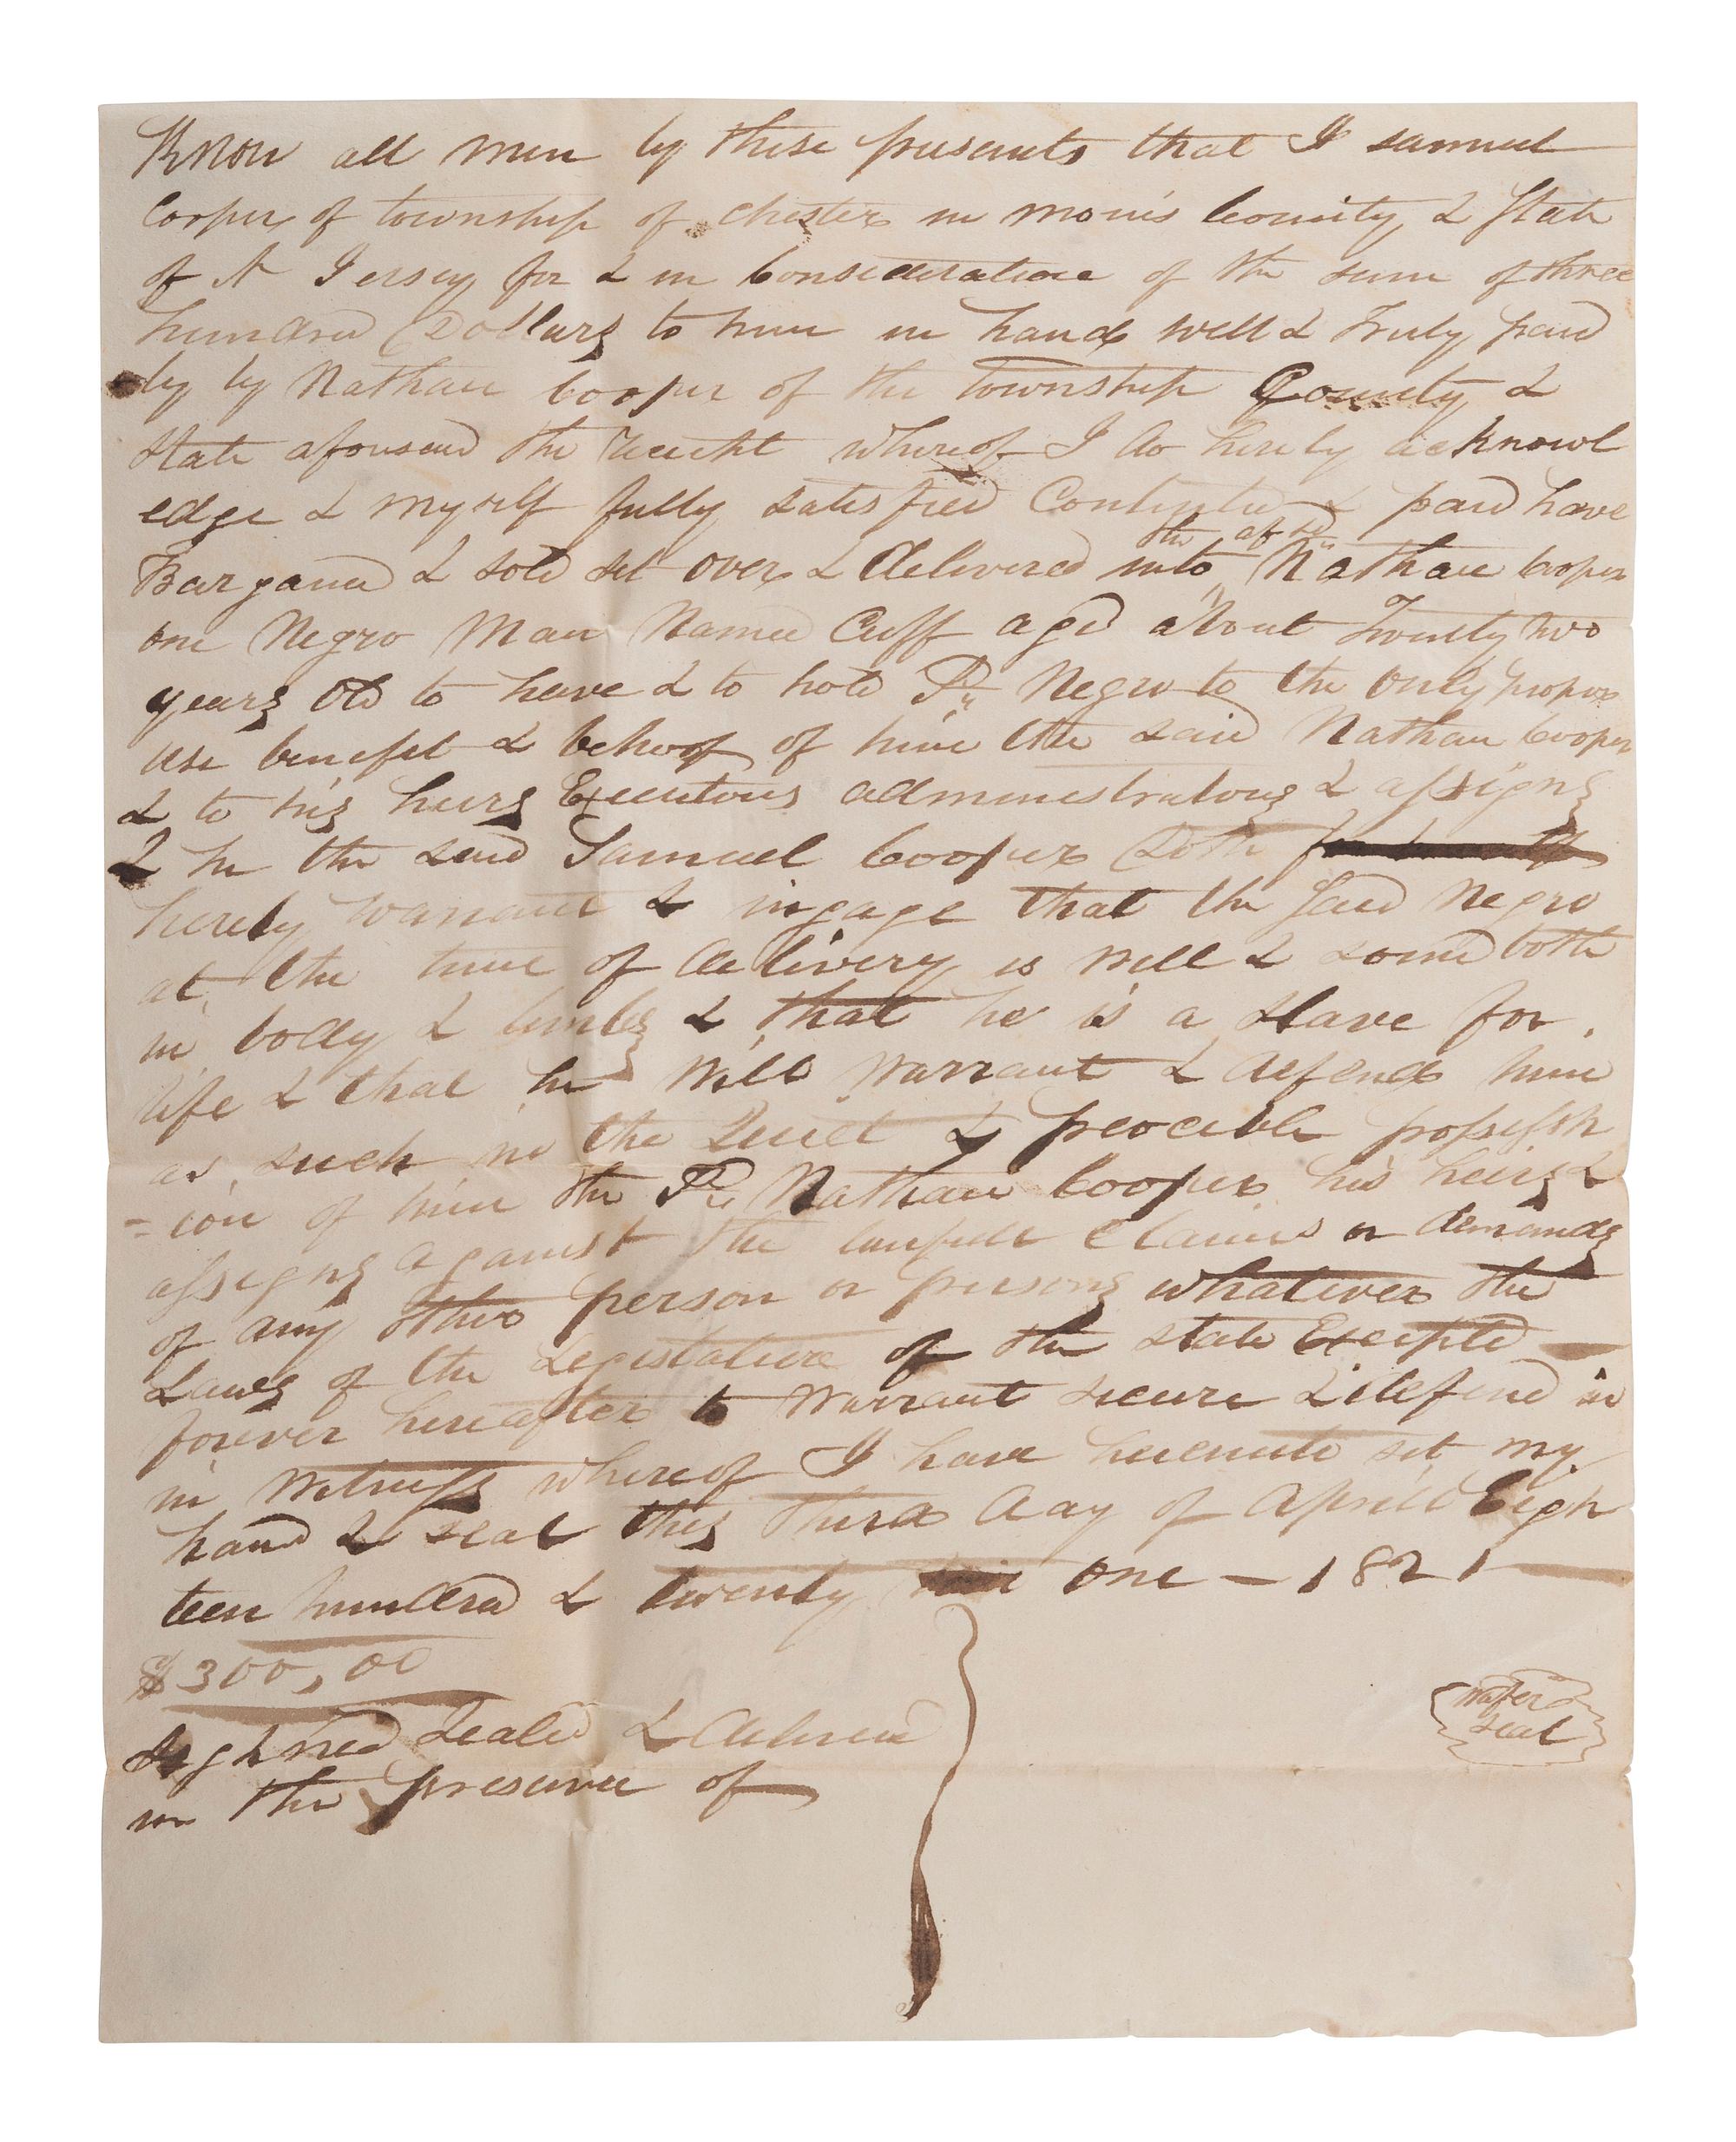 Know all men by these presents that I samuel
Cooper of township of Chester in morris County & State
of N Jersey for & in Consideration of the sum of three
hundred Dollars to him in hand well & Truly paid
by by Nathan Cooper of the township County &
State aforesaid the receiht whereof I do hereby acknowl
edge & myself fully satisfied Contented & paid have
the afsd
Bargained & sold set over & delivered into Nathan Cooper
one Negro Man Named Cuff aged about Twenty two
years old to have & to hold Sd Negro to the only proper
use benefit & behoof of him the said Nathan Cooper
& to his heirs Executors administrators & assigns
& he the said Samuel Cooper Doth
hereby warrant & ingage that the said Negro
at the time of delivery is well & sound both
in body & limbs & that he is a slave for
life & that he will warrant & defend him
as such in the Quiet & peaceible possessh
=ion of him the Sd Nathan Cooper his heirs &
assigns against the lawfull Claims or demands
of any other person or persons whatever the
Laws of the Legislature of the state Excepted
forever hereafter to warrant secure & defend in
in witness whereof I have hereunto set my
hand & seal this third day of Aprill Eigh
teen hundred & twenty one – 1821
$300,00
sighned sealed & delivered
in the presence of
wafer
seal